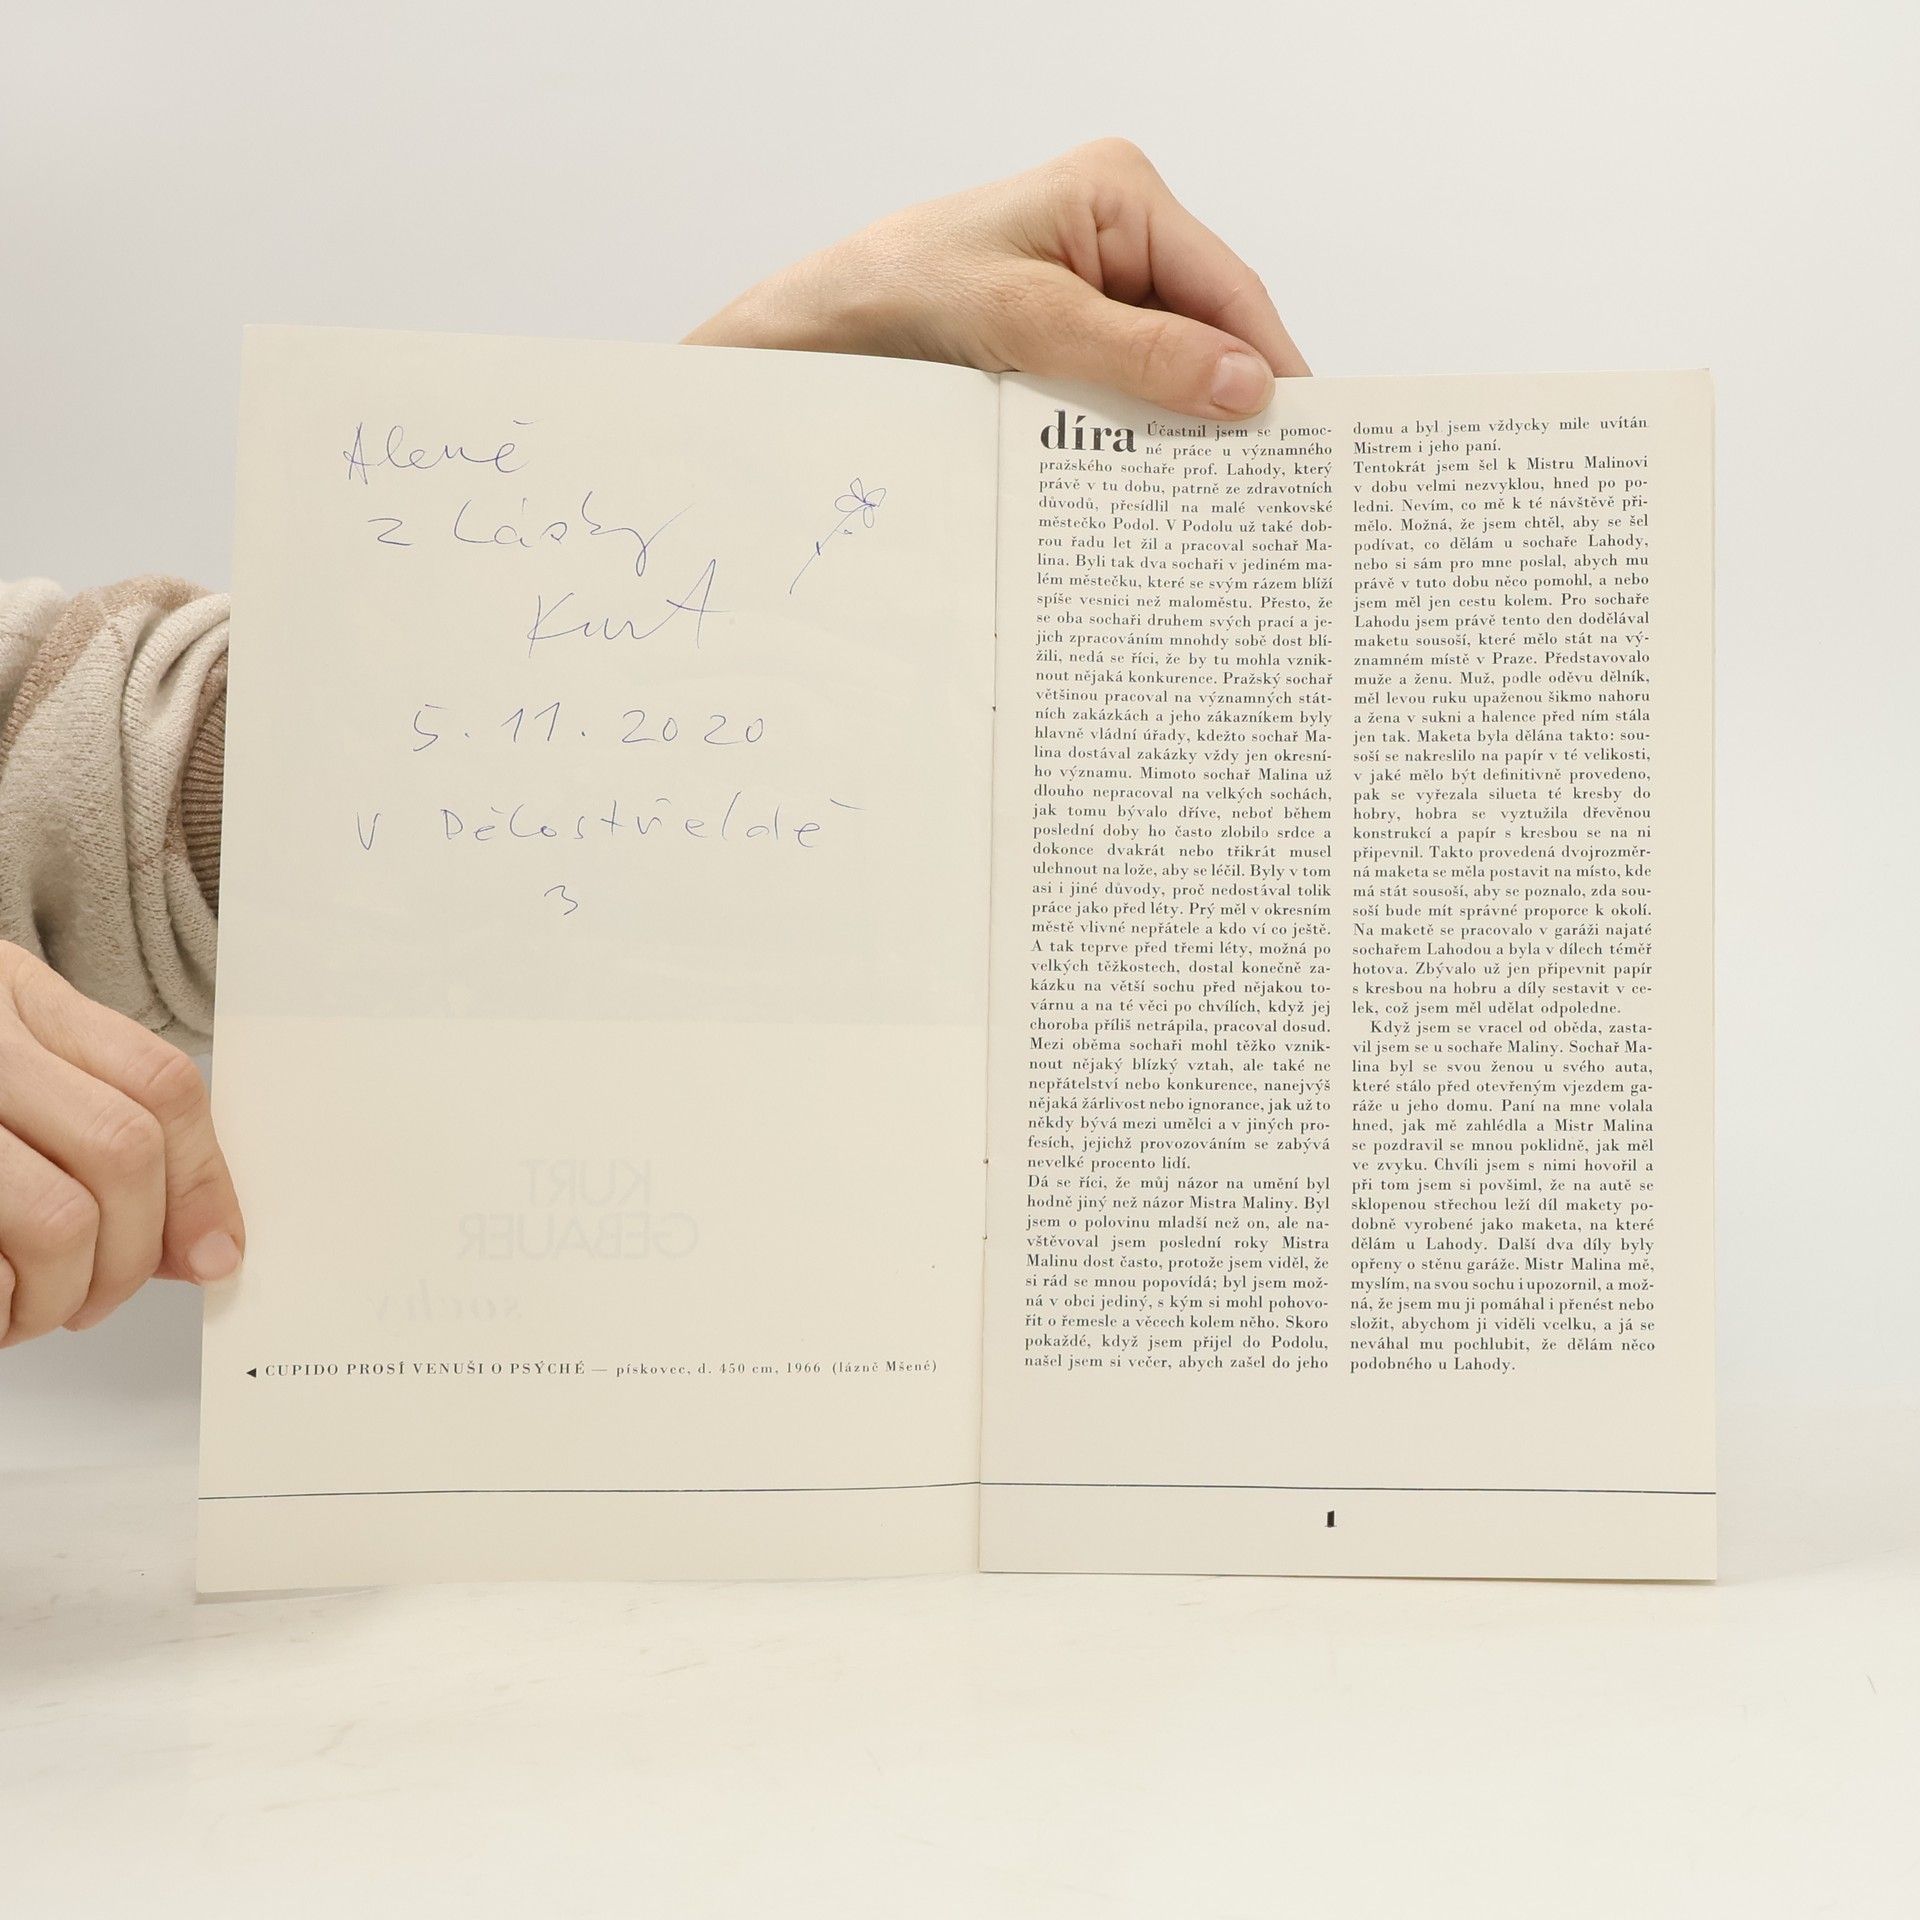 Aleně
z lásky
Kurt
5. 11. 2020
V Dělostřeldě
3
KURT
GEBAUER
sochy
◀ CUPIDO PROSÍ VENUŠI O PSÝCHÉ — pískovec, d. 450 cm, 1966 (lázně Mšené)
díra Účastnil jsem se pomoc-
né práce u významného
pražského sochaře prof. Lahody, který
právě v tu dobu, patrně ze zdravotních
důvodů, přesídlil na malé venkovské
městečko Podol. V Podolu už také dob-
rou řadu let žil a pracoval sochař Ma-
lina. Byli tak dva sochaři v jediném ma-
lém městečku, které se svým rázem blíží
spíše vesnici než maloměstu. Přesto, že
se oba sochaři druhem svých prací a je-
jich zpracováním mnohdy sobě dost blí-
žili, nedá se říci, že by tu mohla vznik-
nout nějaká konkurence. Pražský sochař
většinou pracoval na významných stát-
ních zakázkách a jeho zákazníkem byly
hlavně vládní úřady, kdežto sochař Ma-
lina dostával zakázky vždy jen okresní-
ho významu. Mimoto sochař Malina už
dlouho nepracoval na velkých sochách,
jak tomu bývalo dříve, neboť během
poslední doby ho často zlobilo srdce a
dokonce dvakrát nebo třikrát musel
ulehnout na lože, aby se léčil. Byly v tom
asi i jiné důvody, proč nedostával tolik
práce jako před léty. Prý měl v okresním
městě vlivné nepřátele a kdo ví co ještě.
A tak teprve před třemi léty, možná po
velkých těžkostech, dostal konečně za-
kázku na větší sochu před nějakou to-
várnu a na té věci po chvílích, když jej
choroba příliš netrápila, pracoval dosud.
Mezi oběma sochaři mohl těžko vznik-
nout nějaký blízký vztah, ale také ne
nepřátelství nebo konkurence, nanejvýš
nějaká žárlivost nebo ignorance, jak už to
někdy bývá mezi umělci a v jiných pro-
fesích, jejichž provozováním se zabývá
nevelké procento lidí.
Dá se říci, že můj názor na umění byl
hodně jiný než názor Mistra Maliny. Byl
jsem o polovinu mladší než on, ale na-
vštěvoval jsem poslední roky Mistra
Malinu dost často, protože jsem viděl, že
si rád se mnou popovídá; byl jsem mož-
ná v obci jediný, s kým si mohl pohovo-
řit o řemesle a věcech kolem něho. Skoro
pokaždé, když jsem přijel do Podolu,
našel jsem si večer, abych zašel do jeho
domu a byl jsem vždycky mile uvítán
Mistrem i jeho paní.
Tentokrát jsem šel k Mistru Malinovi
v dobu velmi nezvyklou, hned po po-
ledni. Nevím, co mě k té návštěvě při-
mělo. Možná, že jsem chtěl, aby se šel
podívat, co dělám u sochaře Lahody,
nebo si sám pro mne poslal, abych mu
právě v tuto dobu něco pomohl, a nebo
jsem měl jen cestu kolem. Pro sochaře
Lahodu jsem právě tento den dodělával
maketu sousoší, které mělo stát na vý-
znamném místě v Praze. Představovalo
muže a ženu. Muž, podle oděvu dělník,
měl levou ruku upaženou šikmo nahoru
a žena v sukni a halence před ním stála
jen tak. Maketa byla dělána takto: sou-
soší se nakreslilo na papír v té velikosti,
v jaké mělo být definitivně provedeno,
pak se vyřezala silueta té kresby do
hobry, hobra se vyztužila dřevěnou
konstrukcí a papír s kresbou se na ni
připevnil. Takto provedená dvojrozměr-
ná maketa se měla postavit na místo, kde
má stát sousoší, aby se poznalo, zda sou-
soší bude mít správné proporce k okolí.
Na maketě se pracovalo v garáži najaté
sochařem Lahodou a byla v dílech téměř
hotova. Zbývalo už jen připevnit papír
s kresbou na hobru a díly sestavit v ce-
lek, což jsem měl udělat odpoledne.
Když jsem se vracel od oběda, zasta-
vil jsem se u sochaře Maliny. Sochař Ma-
lina byl se svou ženou u svého auta,
které stálo před otevřeným vjezdem ga-
ráže u jeho domu. Paní na mne volala
hned, jak mě zahlédla a Mistr Malina
se pozdravil se mnou poklidně, jak měl
ve zvyku. Chvíli jsem s nimi hovořil a
při tom jsem si povšiml, že na autě se
sklopenou střechou leží díl makety po-
dobně vyrobené jako maketa, na které
dělám u Lahody. Další dva díly byly
opřeny o stěnu garáže. Mistr Malina mě,
myslím, na svou sochu i upozornil, a mož-
ná, že jsem mu ji pomáhal i přenést nebo
složit, abychom ji viděli vcelku, a já se
neváhal mu pochlubit, že dělám něco
podobného u Lahody.
1